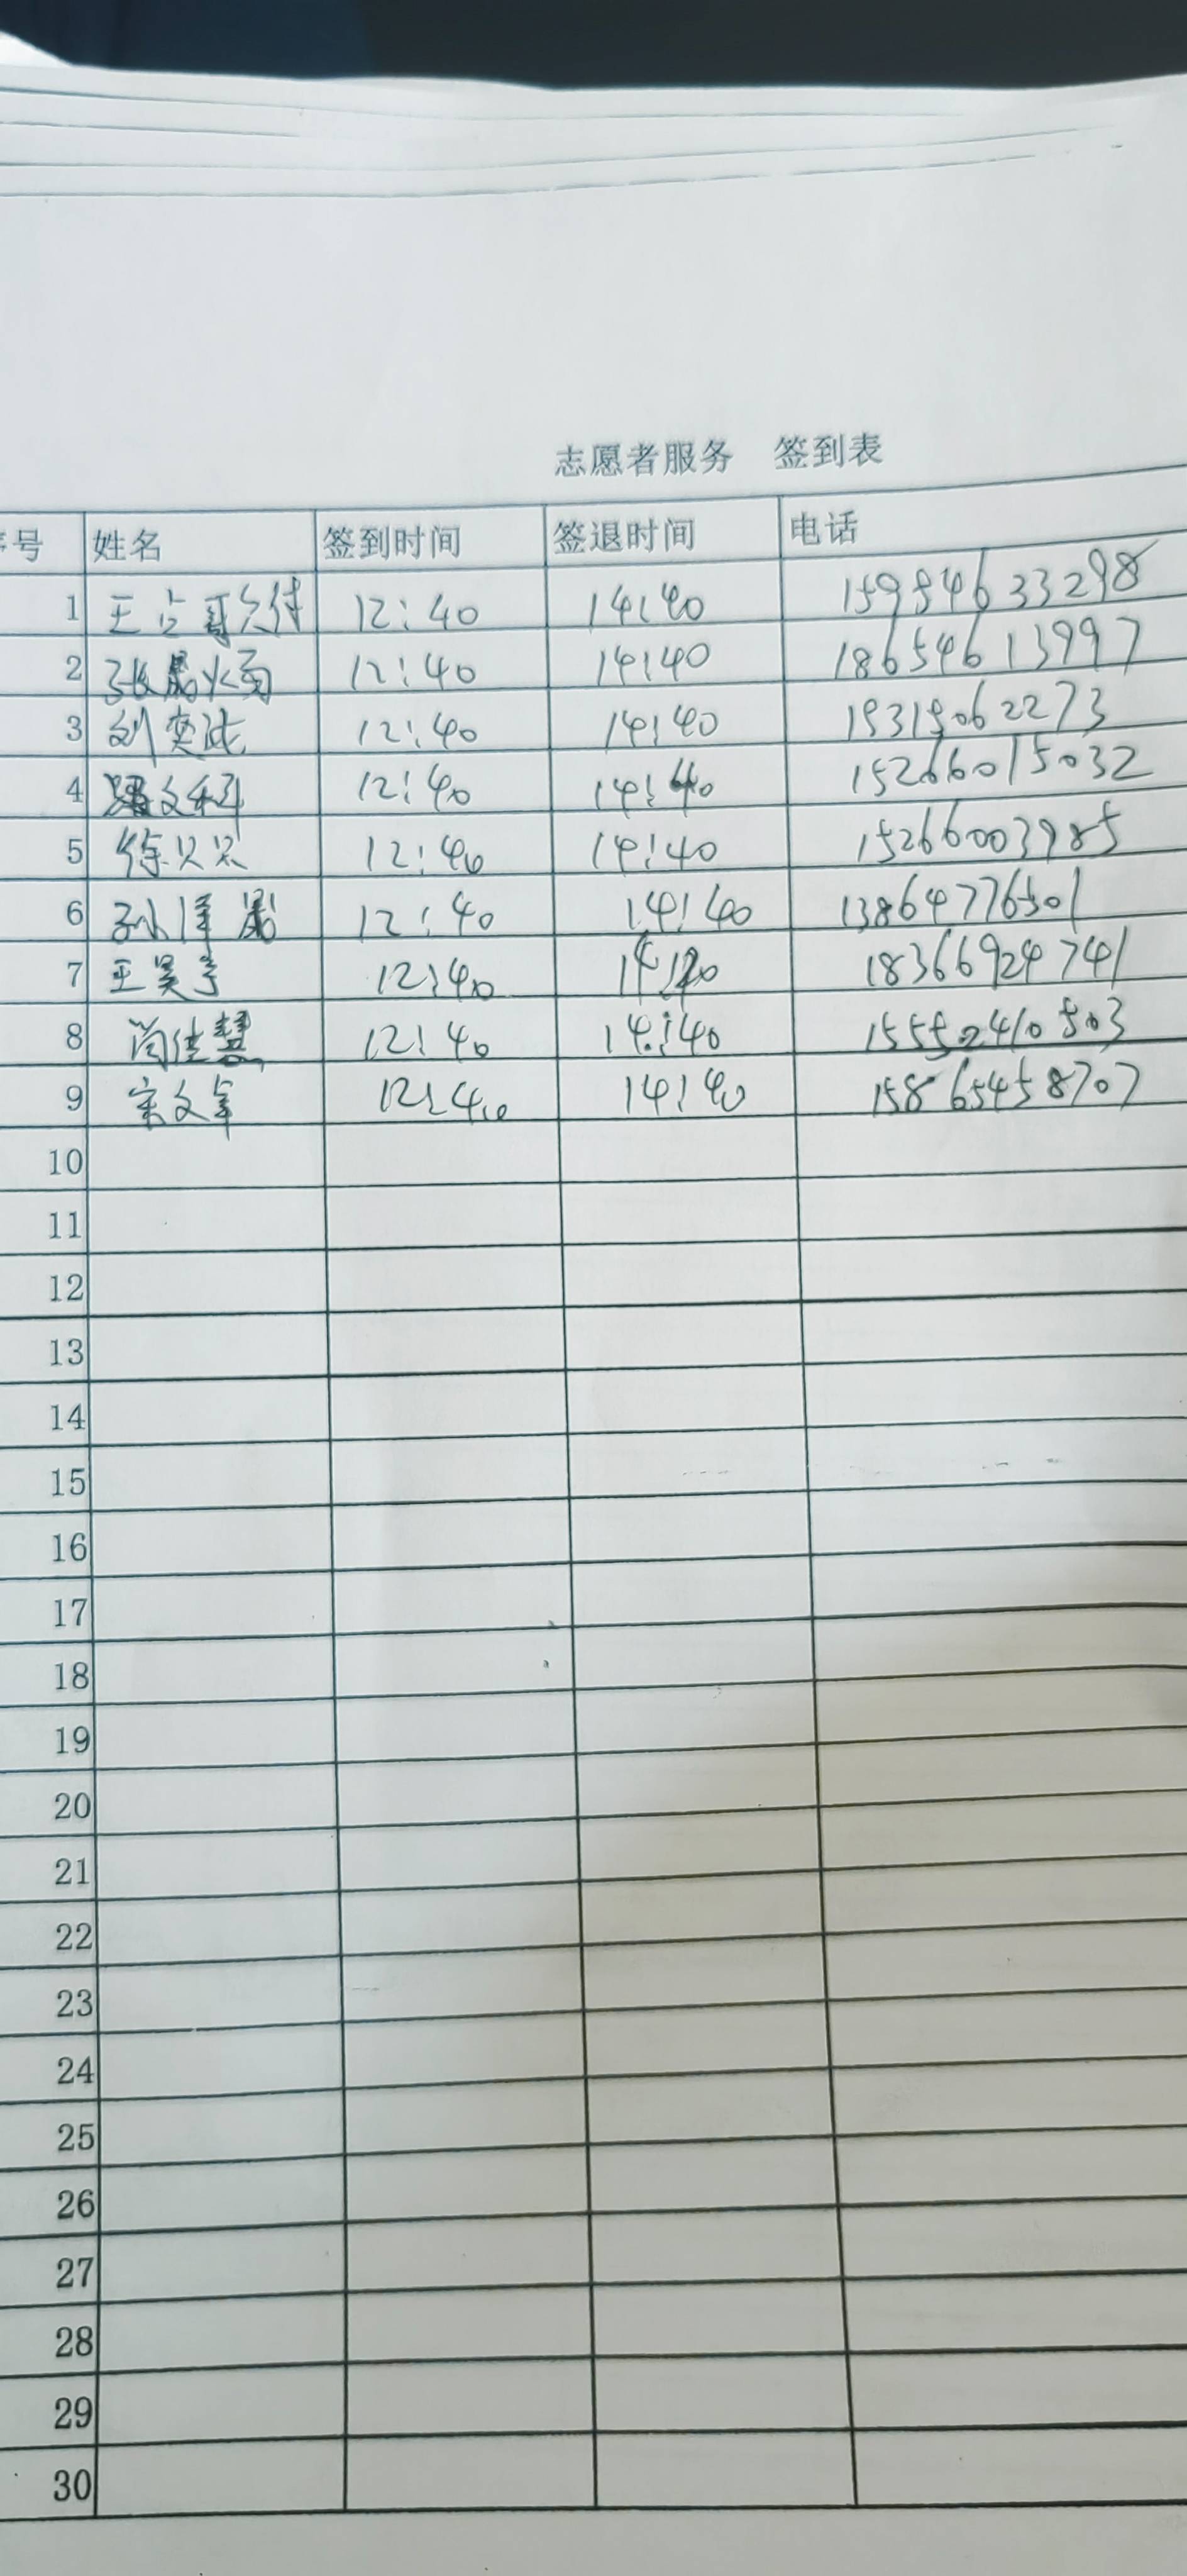 志愿者服务 签到表
号 姓名 签到时间 签退时间 电话
1 12:40 14:40 15954633298
2 12:40 14:40 18654613997
3 刘奕 12:40 14:40 15315062273
4 文科 12:40 14:40 15266015032
5 徐 12:40 14:40 15266003985
6 孙洋晟 12:40 14:40 13864776501
7 王昊宇 12:40 18366924741
8 尚佳慧 12:40 14:40 15552410503
9 宋文卓 12:40 14:40 15865458707
10
11
12
13
14
15
16
17
18
19
20
21
22
23
24
25
26
27
28
29
30